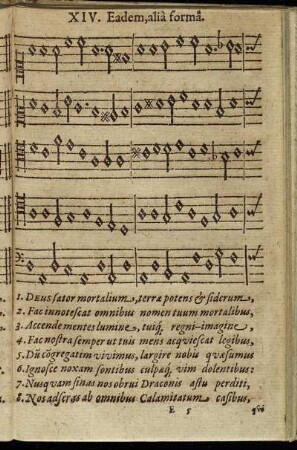 XIV. Eadem, aliâ formâ.
1. DEUS sator mortalium, terra potens & siderum,
2. Fac innotescat omnibus nomen tuum mortalibus,
3. Accende mentes lumine, tuiq́. regni imagine,
4. Fac nostra semper ut tuis mens acquiescat legibus,
5. Dū cōgregatim vivimus, largire nobis quæsumus
6. Ignosce noxam sontibus culpaq́, vim dolentibus:
7. Nusquam sinas nos obrui Draconis astu perditi,
8. Nos adseras ab omnibus Calamitatum casibus,
E 5